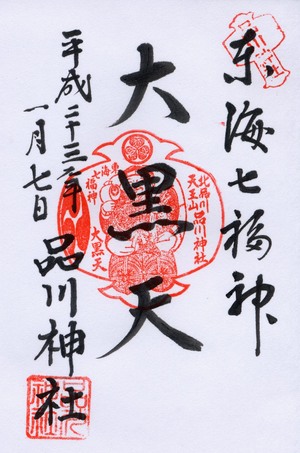 東海七福神
大黒天
平成二十三年
一月七日
品川神社
北品川
天王山 品川神社
東海
七福神
大黒天